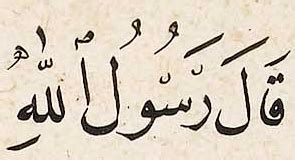 قَالَ رَسُولُ اللّٰهِ